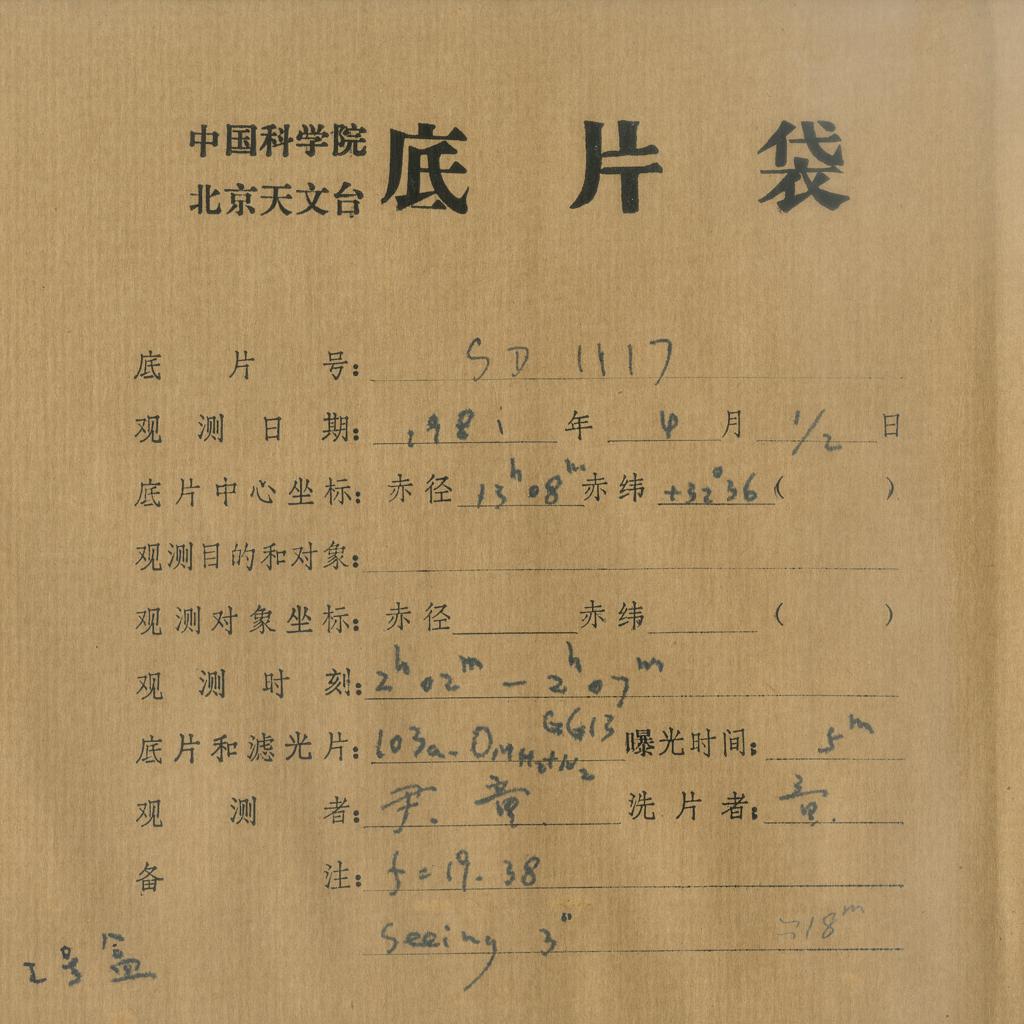 中国科学院
北京天文台 底片袋
底片号: SD 1117
观测日期: 1981 年 4 月 1/2 日
底片中心坐标: 赤径 13h08m 赤纬 +32°36 ( )
观测目的和对象:
观测对象坐标: 赤径 赤纬 ( )
观测时刻: 2h02m — 2h07m
底片和滤光片: 103a-O, GG13 H2+N2 曝光时间: 5m
观测者: 尹. 黄 洗片者: 黄.
备注: f=19.38
Seeing 3"
18m
2号盒